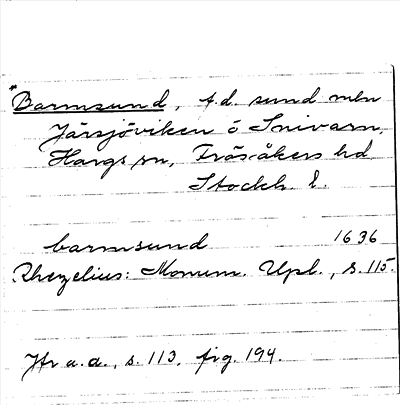 *Barmsund, f.d. sund mln
Järsjöviken o Snivarn,
Hargs sn, Frösåkers hd
Stockh. l.
barmsund 1636
Rhezelius: Monum. Upl., s. 115.
Jfr a.a., s. 113, fig. 194.